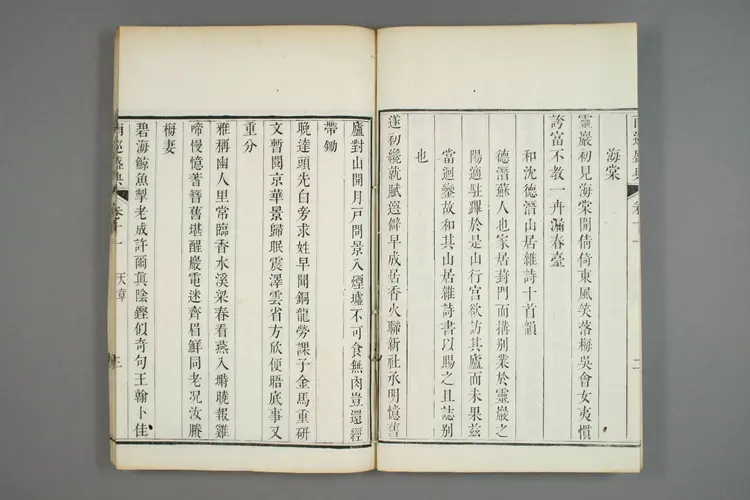 南巡盛典 卷十一 二
海棠
靈巖初見海棠開倚倚東風笑落梅吳會女夷慣
誇富不教一卉漏春臺
和沈德潛山居雜詩十首韻
德潛蘇人也家居葑門而搆別業於靈巖之
陽適駐蹕於是山行宮欲訪其廬而未果茲
當迴鑾故和其山居雜詩書以賜之且誌別
也
遂初纔就賦巡僻早成居香火聯新社承明憶舊
廬對山開月戸問景入煙墟不可食無肉豈還經
帶鋤
晚達頭先白旁求姓早聞銅龍勞課子金馬重研
文暫閱京華景歸眠震澤雲省方欣便晤底事又
重分
雅稱幽人里常臨香水溪梁春看燕入塒曉報雞
啼慢憶著簪舊堪醒巖電迷齊眉鮮同老况汝賸
梅妻
碧海鯨魚掣老成許爾真陰鏗似奇句王翰卜佳
南巡盛典 卷十一 天章 三